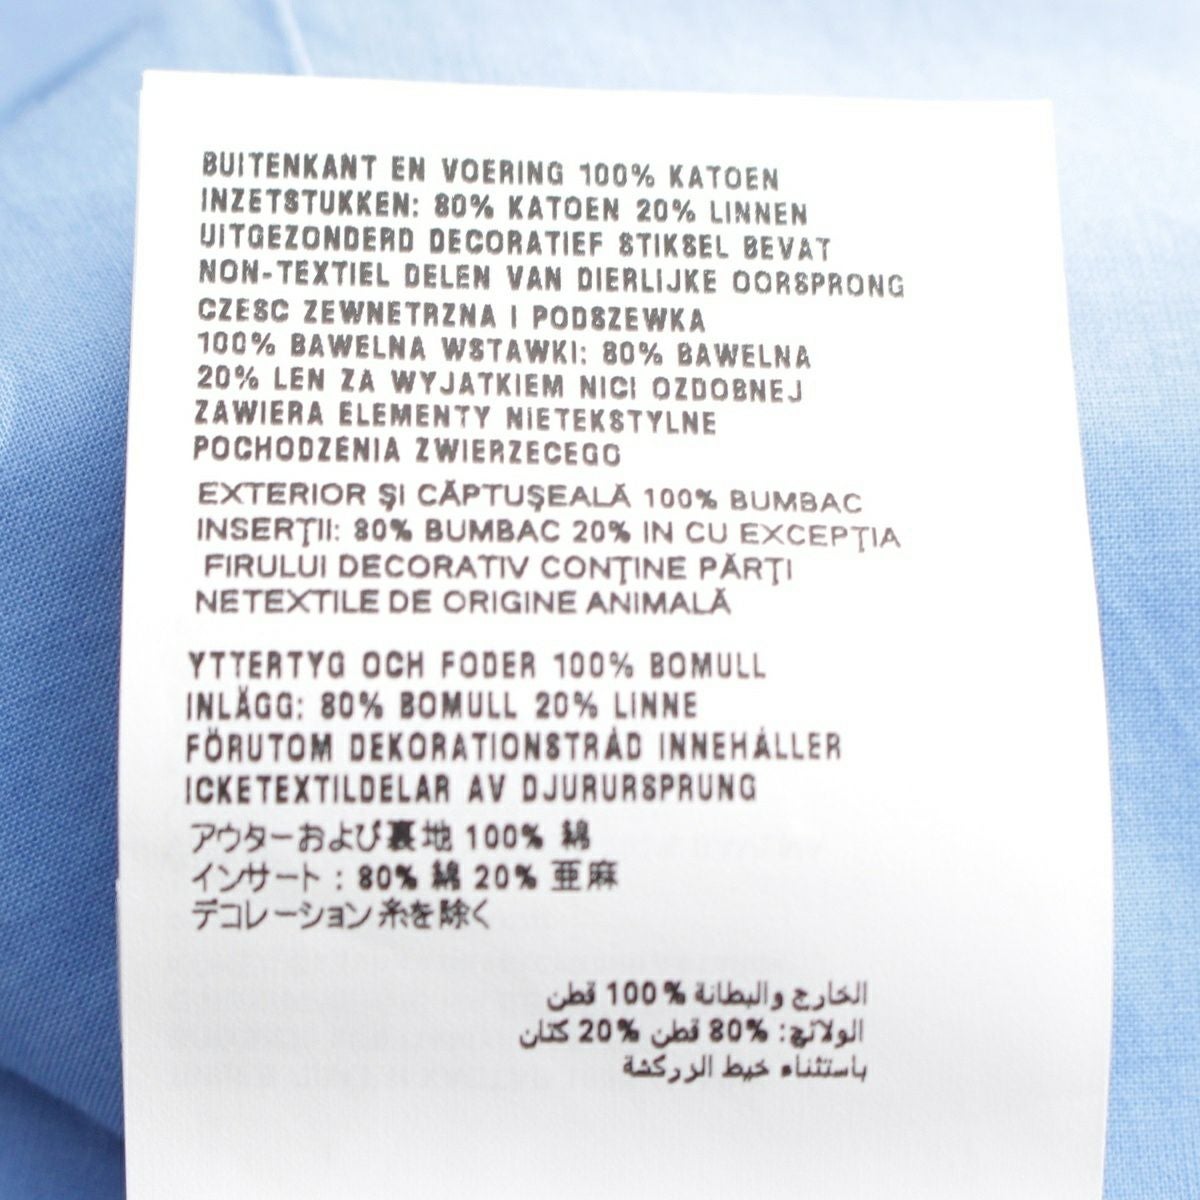 BUITENKANT EN VOERING 100% KATOEN
INZETSTUKKEN: 80% KATOEN 20% LINNEN
UITGEZONDERD DECORATIEF STIKSEL BEVAT
NON-TEXTIEL DELEN VAN DIERLIJKE OORSPRONG
CZESC ZEWNETRZNA I PODSZEWKA
100% BAWELNA WSTAWKI: 80% BAWELNA
20% LEN ZA WYJATKIEM NICI OZDOBNEJ
ZAWIERA ELEMENTY NIETEKSTYLNE
POCHODZENIA ZWIERZECEGO
EXTERIOR ŞI CĂPTUŞEALĂ 100% BUMBAC
INSERŢII: 80% BUMBAC 20% IN CU EXCEPŢIA
FIRULUI DECORATIV CONŢINE PĂRŢI
NETEXTILE DE ORIGINE ANIMALĂ
YTTERTYG OCH FODER 100% BOMULL
INLÄGG: 80% BOMULL 20% LINNE
FÖRUTOM DEKORATIONSTRÅD INNEHÅLLER
ICKETEXTILDELAR AV DJURURSPRUNG
アウターおよび裏地 100% 綿
インサート : 80% 綿 20% 亜麻
デコレーション糸を除く
الخارج والبطانة 100% قطن
الولائج: 80% قطن 20% كتان
باستثناء خيط الزركشة